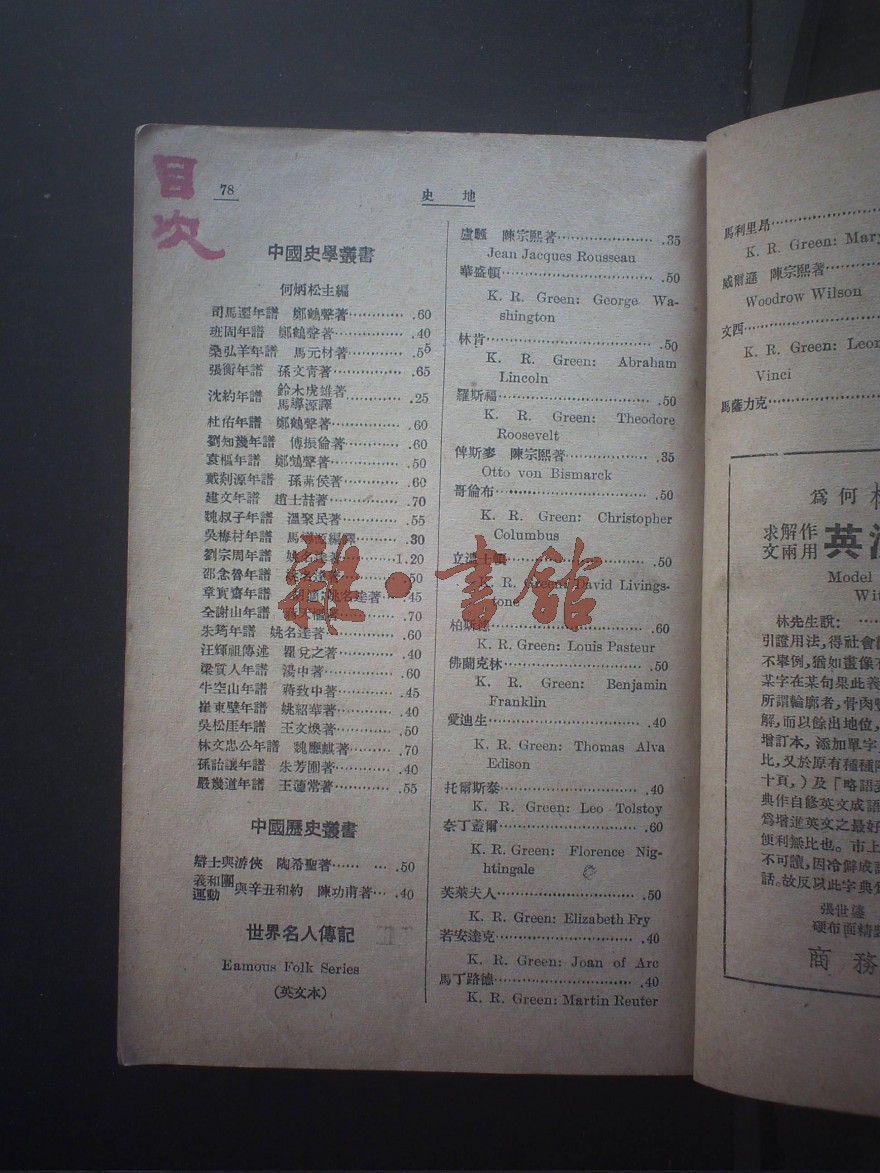 目次
78
史 地
中國史學叢書
何炳松主編
司馬遷年譜 鄭鶴聲著············ .60
班固年譜 鄭鶴聲著············ .40
桑弘羊年譜 馬元材著············ .55
張衡年譜 孫文青著············ .65
沈約年譜 鈴木虎雄著 馬導源譯············ .25
杜佑年譜 鄭鶴聲著············ .60
劉知幾年譜 傅振倫著············ .60
袁樞年譜 鄭鶴聲著············ .50
戴剡源年譜 孫茀侯著············ .60
建文年譜 趙士喆著············ .70
魏叔子年譜 溫聚民著············ .55
吳梅村年譜 馬導源編譯········ .30
劉宗周年譜 姚名達著········1.20
邵念魯年譜 姚名達著 .50
章實齋年譜 胡適 姚名達著··· .45
全謝山年譜 蔣天樞著 .70
朱筠年譜 姚名達著············ .60
汪輝祖傳述 瞿兌之著········· .40
梁質人年譜 湯中著············ .60
牛空山年譜 蔣致中著········· .45
崔東壁年譜 姚紹華著········· .40
吳松厓年譜 王文煥著········· .50
林文忠公年譜 魏應麒著······ .70
孫詒讓年譜 朱芳圃著········· .40
嚴幾道年譜 王蘧常著········· .55
中國歷史叢書
辯士與游俠 陶希聖著········· .50
義和團運動與辛丑和約 陳功甫著··· .40
世界名人傳記
Eamous Folk Series
(英文本)
盧騷 陳宗熙著····················· .35
Jean Jacques Rousseau
華盛頓································· .50
K. R. Green: George Wa-
shington
林肯···································· .50
K. R. Green: Abraham
Lincoln
羅斯福································· .50
K. R. Green: Theodore
Roosevelt
俾斯麥 陳宗熙著··················· .35
Otto von Bismarck
哥倫布································· .50
K. R. Green: Christopher
Columbus
立溫士頓······························ .50
K. R. Green: David Livings-
tone
柏斯德································· .60
K. R. Green: Louis Pasteur
佛蘭克林······························ .50
K. R. Green: Benjamin
Franklin
愛迪生································· .40
K. R. Green: Thomas Alva
Edison
托爾斯泰······························ .40
K. R. Green: Leo Tolstoy
奈丁蓋爾······························ .60
K. R. Green: Florence Nig-
htingale
英萊夫人······························ .50
K. R. Green: Elizabeth Fry
若安達克······························ .40
K. R. Green: Joan of Arc
馬丁路德······························ .40
K. R. Green: Martin Reuter
雜·書館
馬利里昂·················
K. R. Green: Mary
威爾遜 陳宗熙著·········
Woodrow Wilson
文西·····················
K. R. Green: Leon
Vinci
馬薩力克·················
為何
求解作
文兩用
英漢
Model
Wit
林先生說: ······
引證用法,得社會
不舉例,猶如畫像不
某字在某句果此義
所謂輪廓者,骨肉
解,而以餘出地位,
增訂本,添加單字
比,又於原有種種
十頁,)及「略語
典作自修英文成語
為增進英文之最好
便利無比也。市上
不可讀,因冷僻成
話。故反以此字典
張世鎏
硬布面精
商務